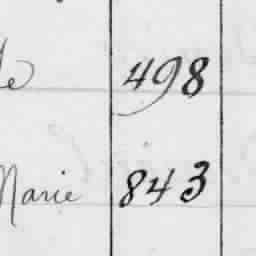 le 498
Marie 843